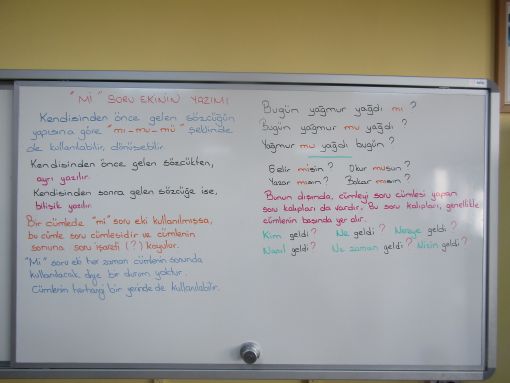 "Mİ" SORU EKİNİN YAZIMI
Kendisinden önce gelen sözcüğün
yapısına göre "mı-mu-mü" şeklinde
de kullanılabilir, dönüşebilir.
Kendisinden önce gelen sözcükten,
ayrı yazılır.
Kendisinden sonra gelen sözcüğe ise,
bitişik yazılır.
Bir cümlede "mi" soru eki kullanılmışsa,
bu cümle soru cümlesidir ve cümlenin
sonuna soru işareti (?) koyulur.
"Mi" soru eki her zaman cümlenin sonunda
kullanılacak diye bir durum yoktur.
Cümlenin herhangi bir yerinde de kullanılabilir.
Bugün yağmur yağdı mı ?
Bugün yağmur mu yağdı ?
Yağmur mu yağdı bugün ?
Gelir misin ? Okur musun ?
Yazar mısın ? Bakar mısın ?
Bunun dışında, cümleyi soru cümlesi yapan
soru kalıpları da vardır. Bu soru kalıpları, genellikle
cümlenin başında yer alır.
Kim geldi ? Ne geldi ? Nereye geldi ?
Nasıl geldi ? Ne zaman geldi ? Niçin geldi ?